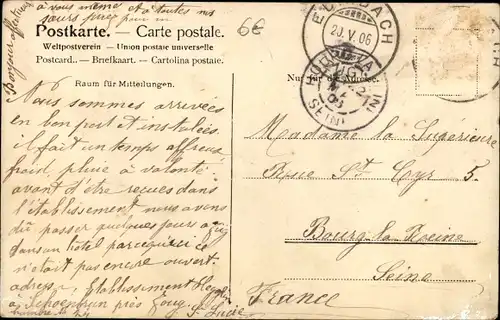 à vous même et à toutes nos
sœurs
Bonjour affectueux
6€
Postkarte. — Carte postale.
Weltpostverein — Union postale universelle
Postcard. — Briefkaart. — Cartolina postale.
Raum für Mitteilungen.
Nur für die Adresse.
BACH
20.V.06
SEINE
Nous sommes arrivées
en bon port et installées.
Il fait un temps affreux
froid, pluie à volonté.
avant d'être reçues dans
l'établissement nous avons
dû passer quelques jours à Zug
dans un hôtel parcequ'ici ce
n'était pas encore ouvert.
adress. Etablissement
à Schoenbrun près Zoug.
numéro 24
Sr Lucie
Madame la Supérieure
Rue St Cyr 5.
Bourg la Reine
Seine
France